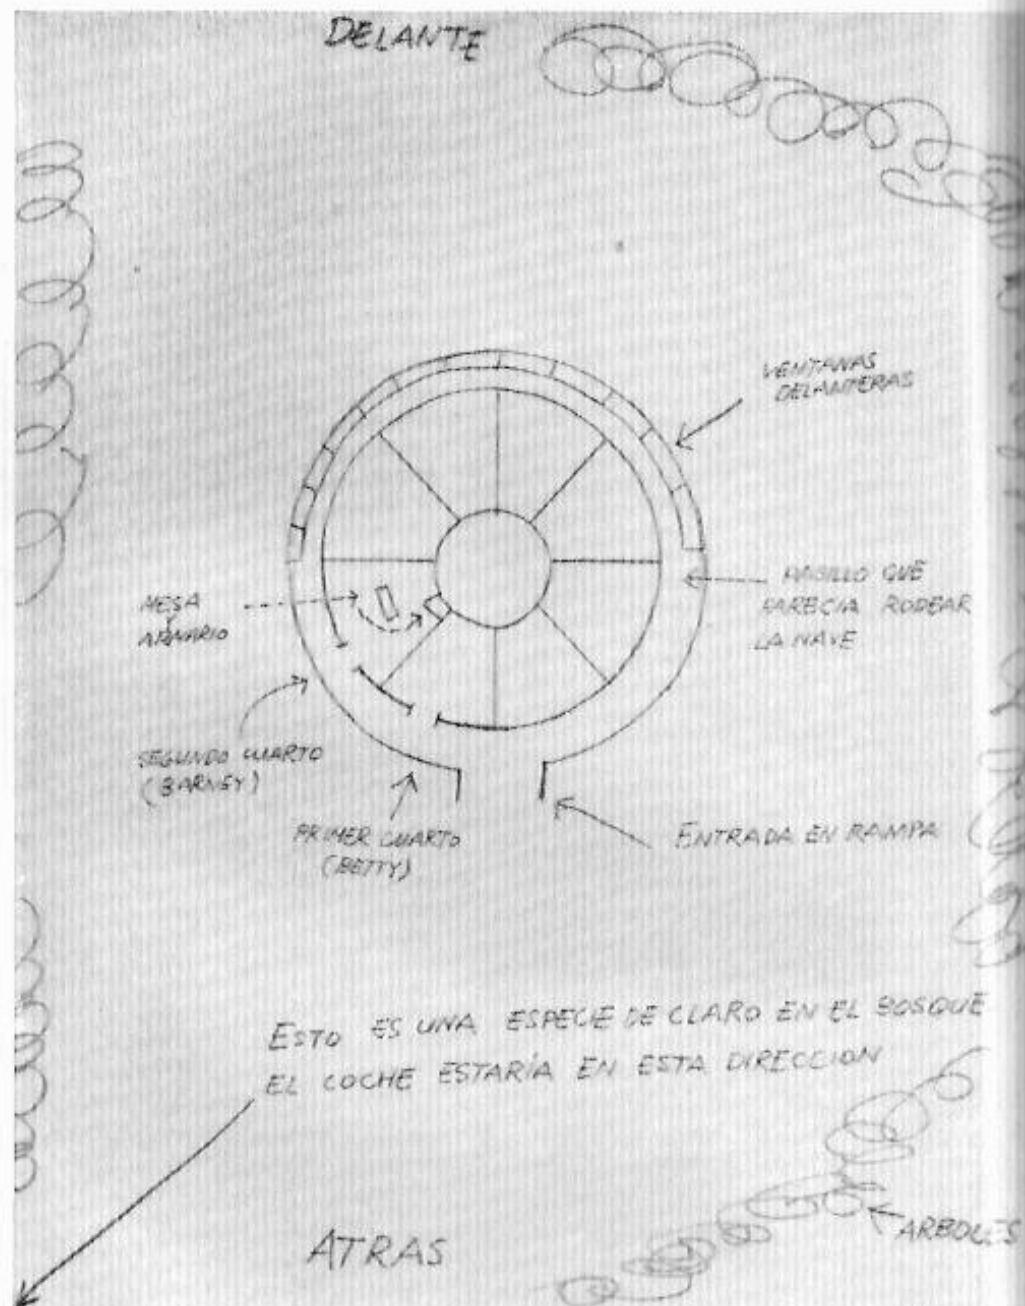 DELANTE
VENTANAS
DELANTERAS
PASILLO QUE
PARECIA RODEAR
LA NAVE
MESA
Y
ARMARIO
SEGUNDO CUARTO
(BARNEY)
PRIMER CUARTO
(BETTY)
ENTRADA EN RAMPA
ESTO ES UNA ESPECIE DE CLARO EN EL BOSQUE
EL COCHE ESTARÍA EN ESTA DIRECCION
ATRAS
ARBOLES